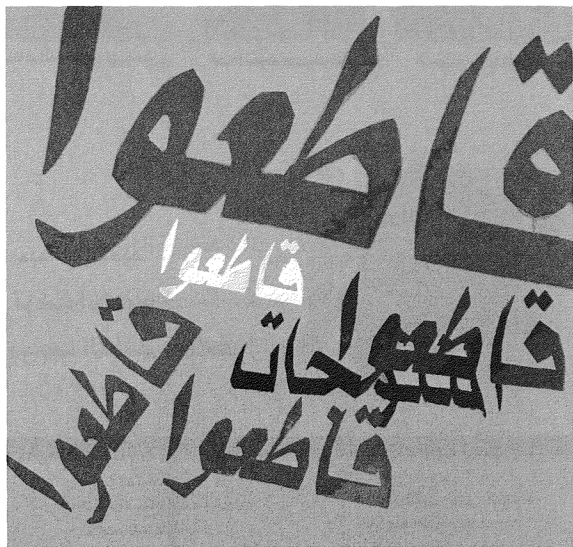 قاطعوا
قاطعوا
قاطعوا
قاطعوا
قاطعوا